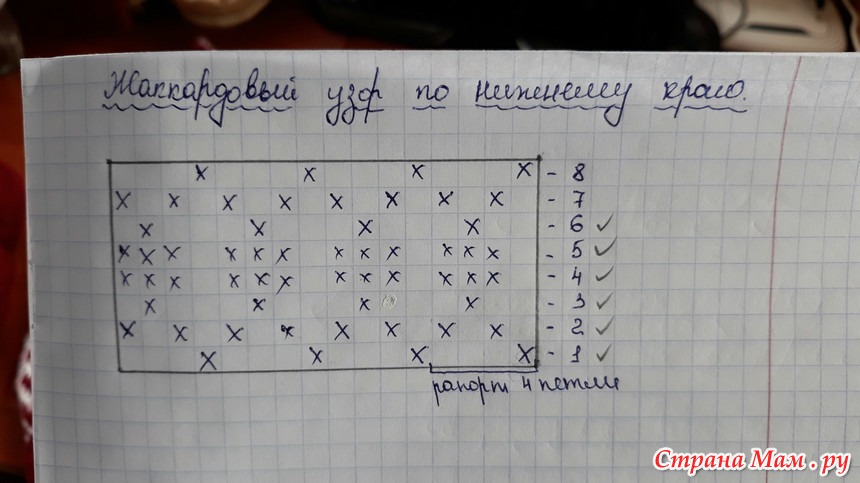 Жаккардовый узор по нижнему краю.
X X X X - 8
X X X X X X X X - 7
X X X X - 6 ✓
X X X X X X X X X X X X - 5 ✓
X X X X X X X X X X X X - 4 ✓
X X X X - 3 ✓
X X X X X X X X - 2 ✓
X X X X - 1 ✓
рапорт 4 петли
Страна Мам.ру